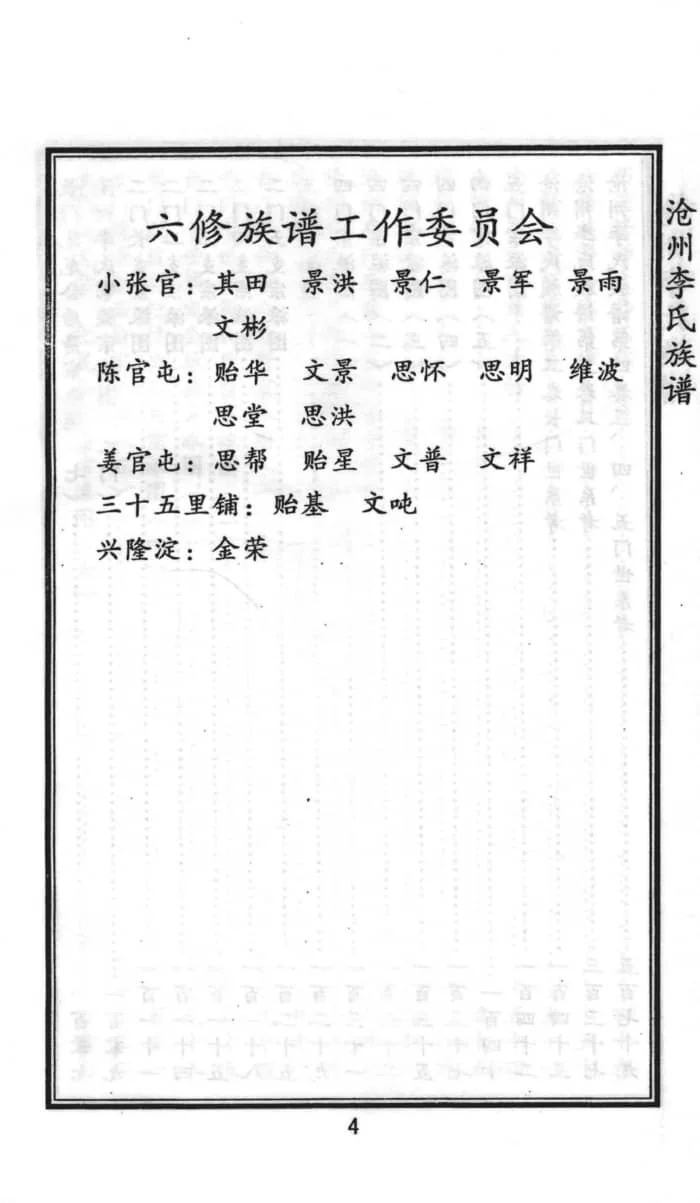 六修族谱工作委员会
小张官：其田 景洪 景仁 景军 景雨
文彬
陈官屯：贻华 文景 思怀 思明 维波
思堂 思洪
姜官屯：思帮 贻星 文普 文祥
三十五里铺：贻基 文吨
兴隆淀：金荣
沧州李氏族谱
4